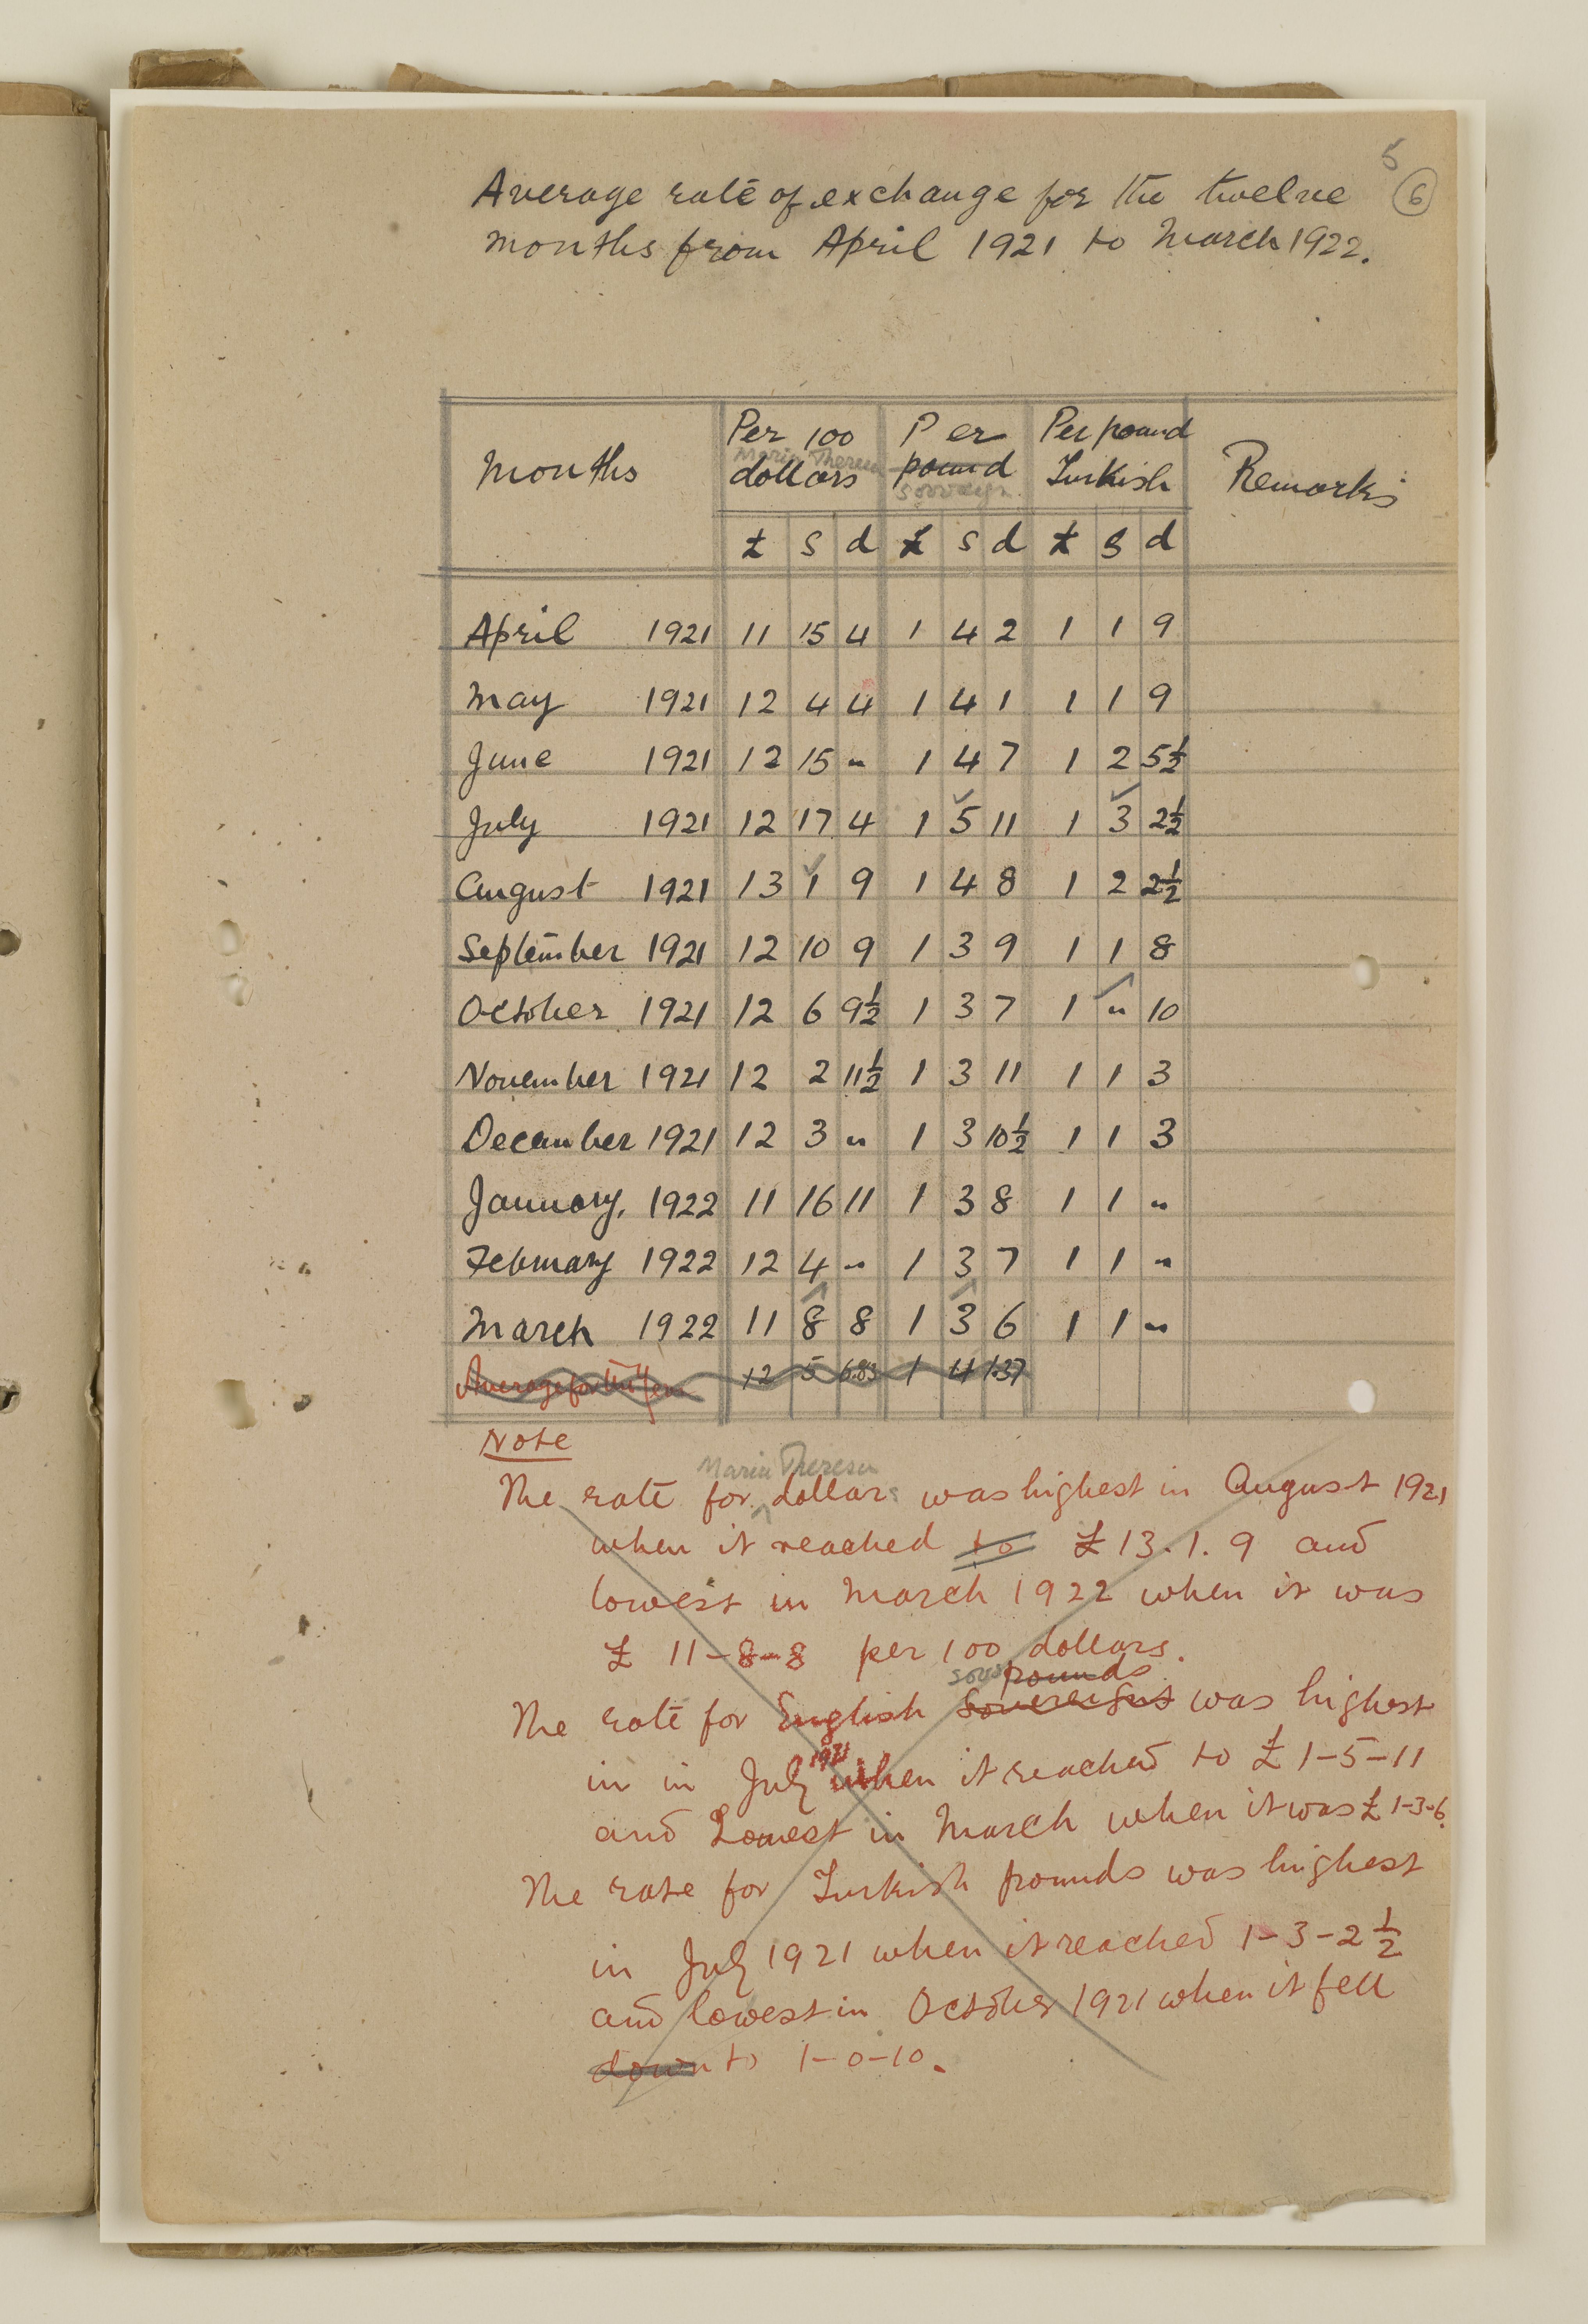 5
Average rate of exchange for the twelve 6
months from April 1921 to March 1922.
Months Per 100 Maria Theresa dollars Per pound sovereign Per pound Turkish Remarks
£ s d £ s d £ s d
April 1921 11 15 4 1 4 2 1 1 9
May 1921 12 4 4 1 4 1 1 1 9
June 1921 12 15 " 1 4 7 1 2 5½
July 1921 12 17 4 1 5 11 1 3 2½
August 1921 13 1 9 1 4 8 1 2 2½
September 1921 12 10 9 1 3 9 1 1 8
October 1921 12 6 9½ 1 3 7 1 " 10
November 1921 12 2 11½ 1 3 11 1 1 3
December 1921 12 3 " 1 3 10½ 1 1 3
January, 1922 11 16 11 1 3 8 1 1 "
February 1922 12 4 " 1 3 7 1 1 "
March 1922 11 8 8 1 3 6 1 1 "
Average for the year 12 5 6.83 1 4 1.37
Note
Maria Theresa
The rate for dollars was highest in August 1921
when it reached to £ 13. 1. 9 and
lowest in March 1922 when it was
£ 11-8-8 per 100 dollars.
sovs pounds
The rate for English Sovereigns was highest
1921
in in July when it reached to £ 1-5-11
and Lowest in March when it was £ 1-3-6.
The rate for Turkish pounds was highest
in July 1921 when it reached 1-3-2½
and lowest in October 1921 when it fell
down to 1-0-10.